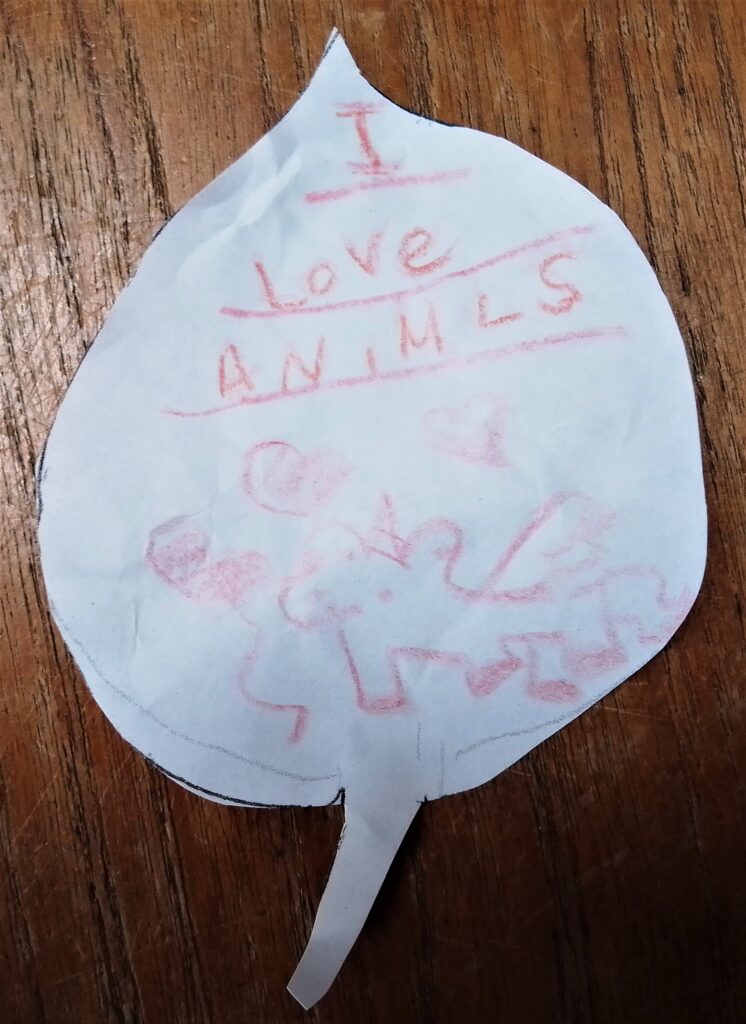 I
Love
ANiMLS